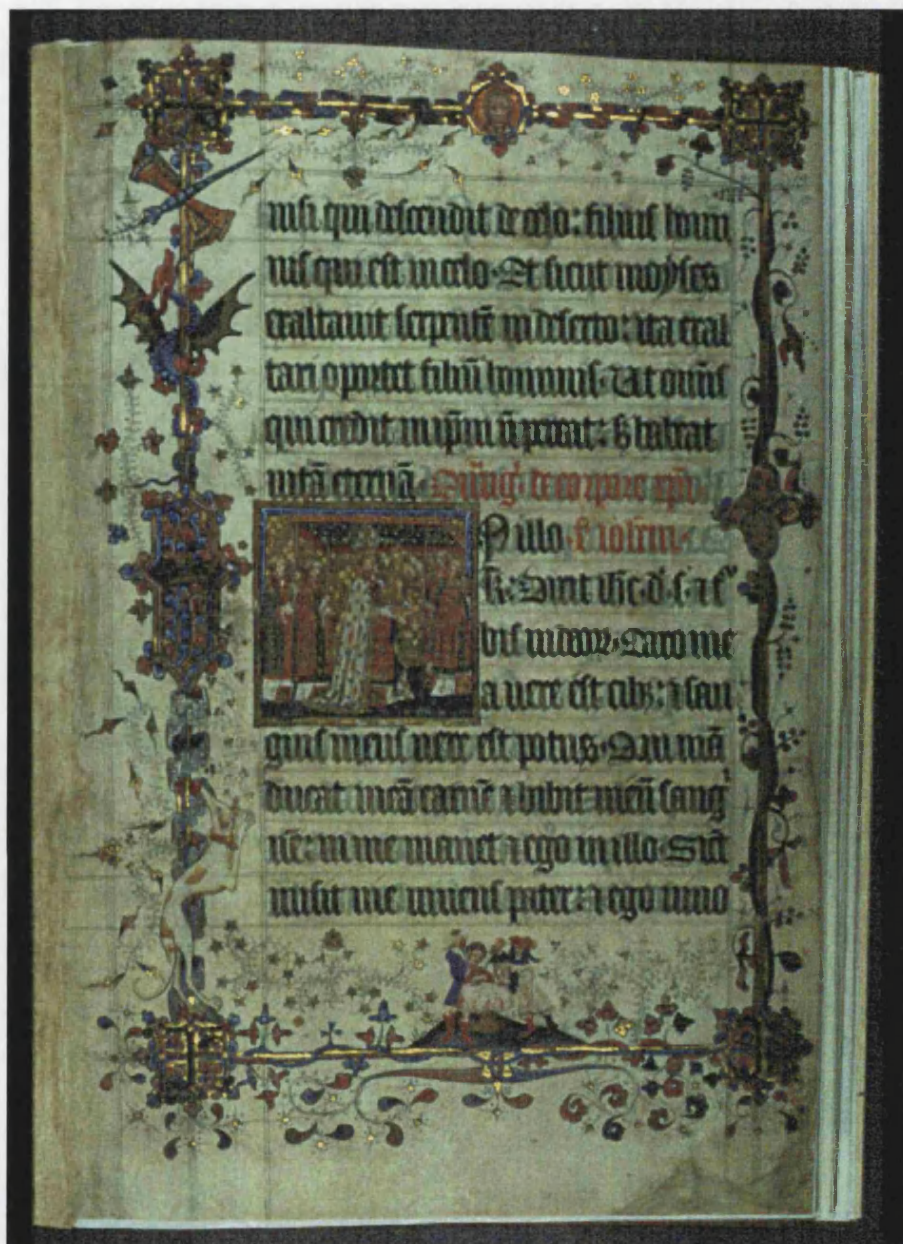 nisi qui descendit de celo: filius homi
nis qui est in celo. Et sicut moyses
exaltauit serpentē in deserto: ita exal
tari oportet filiū hominis. Ut om̄is
qui credit in ip̄m n̄ pereat: s; habeat
uitā eternā. de corpore xp̄i.
N illo. s
Dixit ih̄c. d. s.
bis iudeor. Caro me
a uere est cib;: ⁊ san
guis meus uere est potus. Qui mā
ducat meā carnē ⁊ bibit meū sang
nē: in me manet ⁊ ego in illo. Sicut
misit me uiuens pater: ⁊ ego uiuo